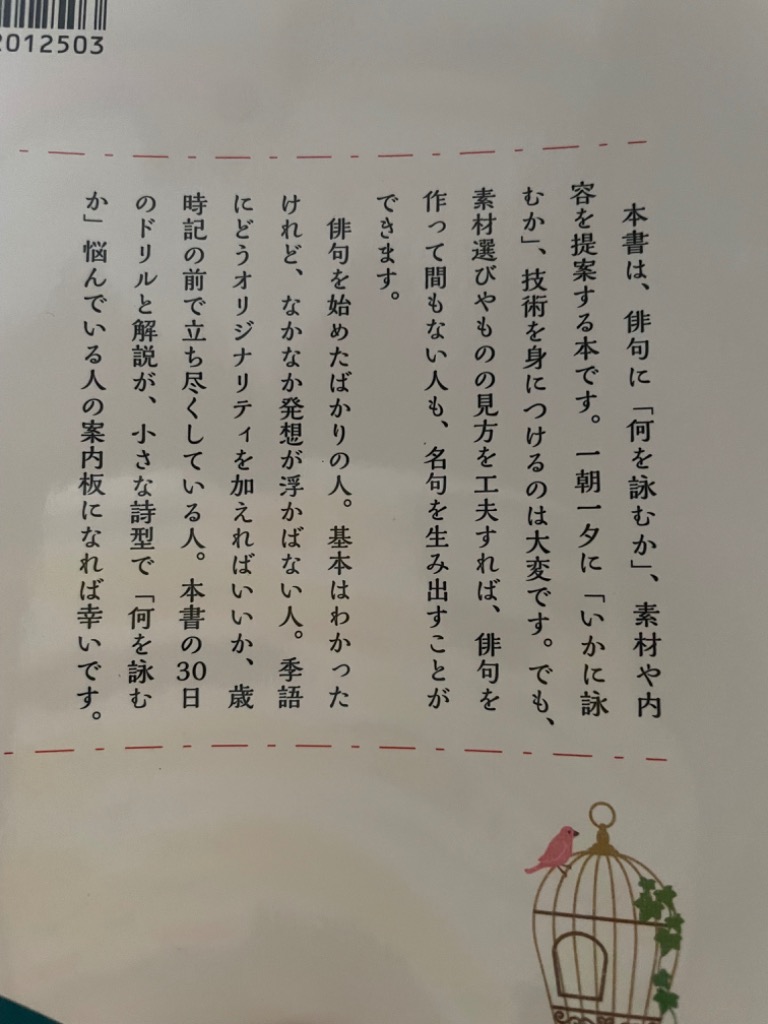 2012503
本書は、俳句に「何を詠むか」、素材や内
容を提案する本です。一朝一夕に「いかに詠
むか」、技術を身につけるのは大変です。でも、
素材選びやものの見方を工夫すれば、俳句を
作って間もない人も、名句を生み出すことが
できます。
俳句を始めたばかりの人。基本はわかった
けれど、なかなか発想が浮かばない人。季語
にどうオリジナリティを加えればいいか、歳
時記の前で立ち尽くしている人。本書の30日
のドリルと解説が、小さな詩型で「何を詠む
か」悩んでいる人の案内板になれば幸いです。